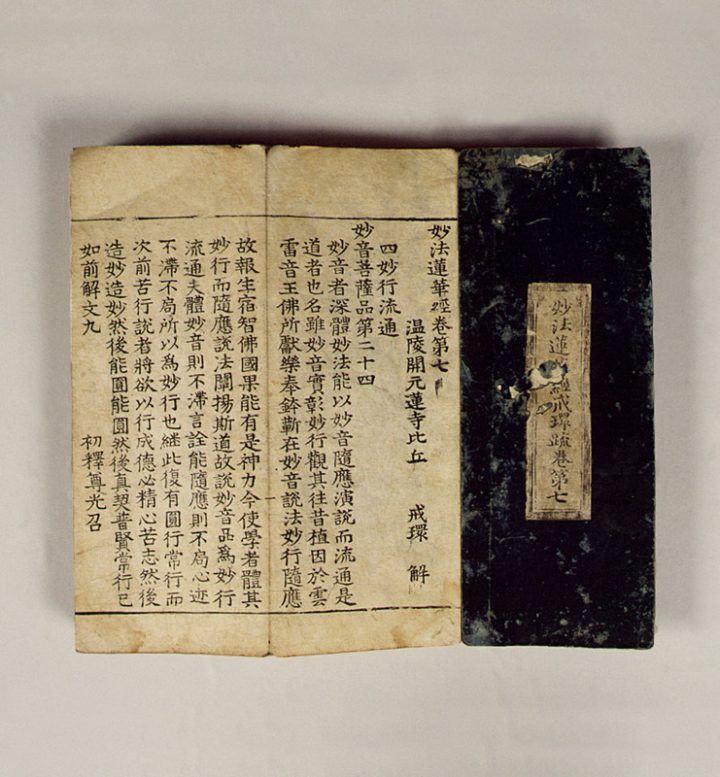 妙法蓮 經戒環疏卷第七
妙法蓮華經卷第七
温陵開元蓮寺比丘 戒環 解
四妙行流通
妙音菩薩品第二十四
妙音者深體妙法能以妙音隨應演說而流通是
道者也名雖妙音實彰妙行觀其往昔植因於雲
雷音王佛所獻樂奉鉢蘄在妙音說法妙行隨應
故報生宿智佛國果能有是神力今使學者體其
妙行而隨應說法闡揚斯道故說妙音品爲妙行
流通夫體妙音則不滯言詮能隨應則不局心迹
不滯不局所以爲妙行也継此復有圓行常行而
次前苦行說者將欲以行成德必精心苦志然後
造妙造妙然後能圓能圓然後真契普賢常行已
如前解文九 初釋尊光召